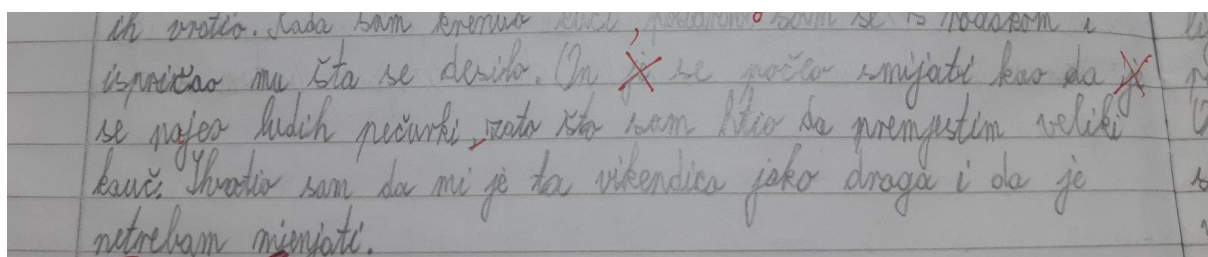 ih vratio. Kada sam krenuo kući, pozdravio sam se s rođakom i
ispričao mu šta se desilo. On je se počeo smijati kao da je
se najeo ludih pečurki, zato što sam htio da premjestim veliki
kauč. Shvatio sam da mi je ta vikendica jako draga i da je
netrebam mjenjati.